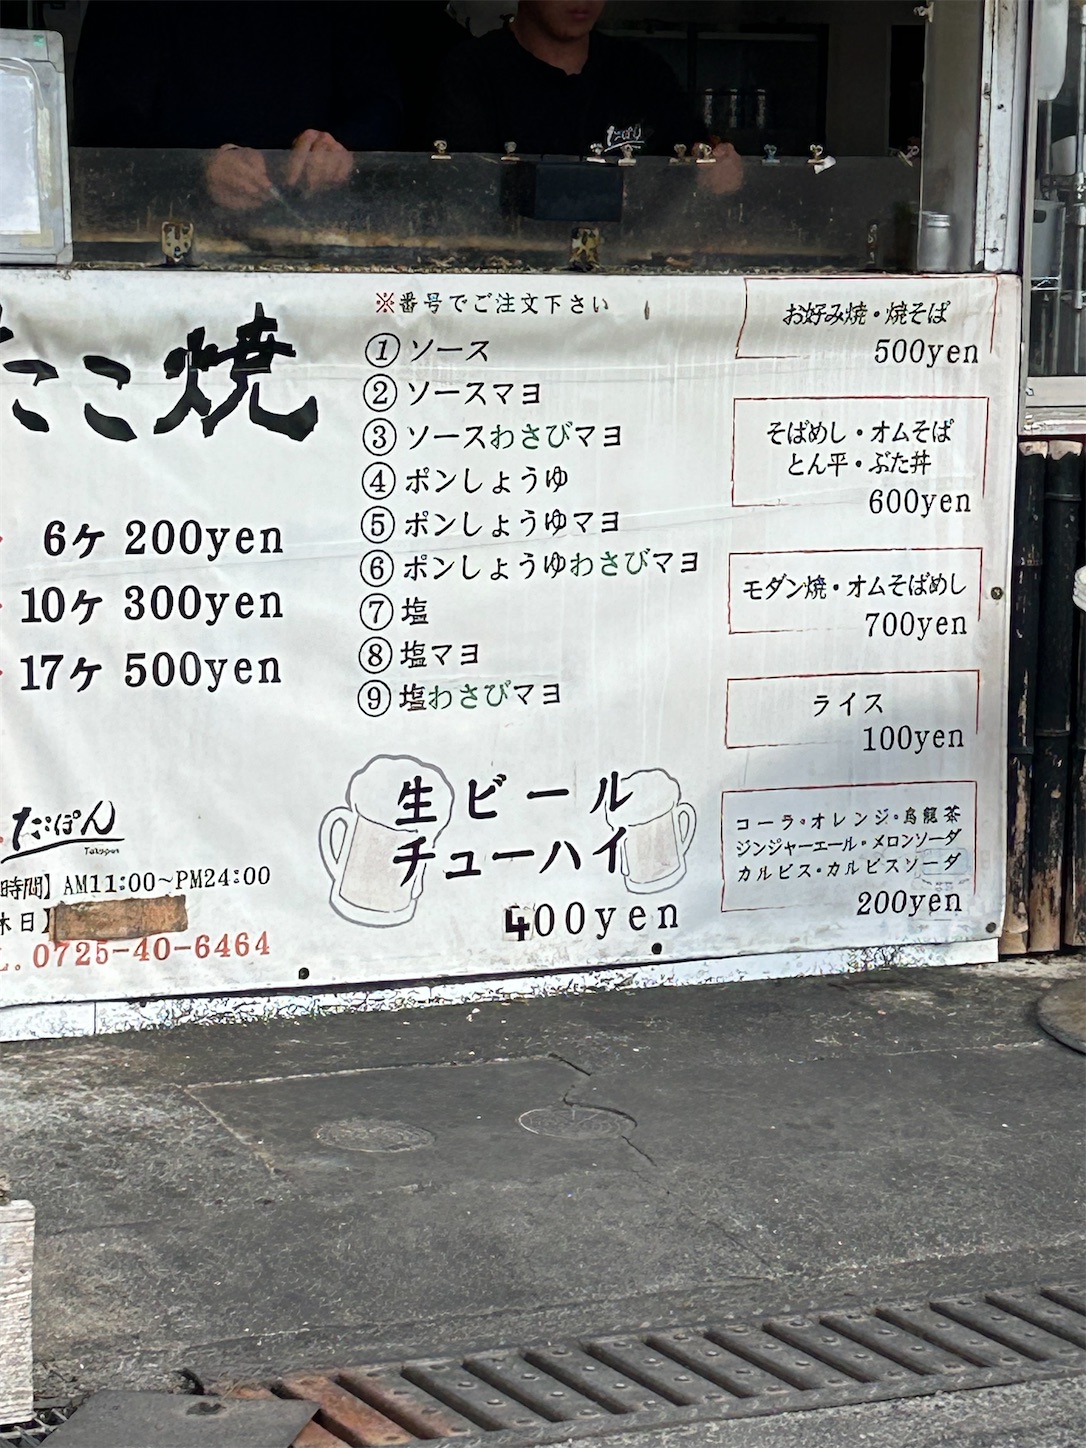 たこ焼
6ケ 200yen
10ケ 300yen
17ケ 500yen
たこぽん
時間】AM11:00~PM24:00
休日】
L. 0725-40-6464
※番号でご注文下さい
①ソース
②ソースマヨ
③ソースわさびマヨ
④ポンしょうゆ
⑤ポンしょうゆマヨ
⑥ポンしょうゆわさびマヨ
⑦塩
⑧塩マヨ
⑨塩わさびマヨ
生ビール
チューハイ
400yen
お好み焼・焼そば
500yen
そばめし・オムそば
とん平・ぶた丼
600yen
モダン焼・オムそばめし
700yen
ライス
100yen
コーラ・オレンジ・烏龍茶
ジンジャーエール・メロンソーダ
カルピス・カルピスソーダ
200yen